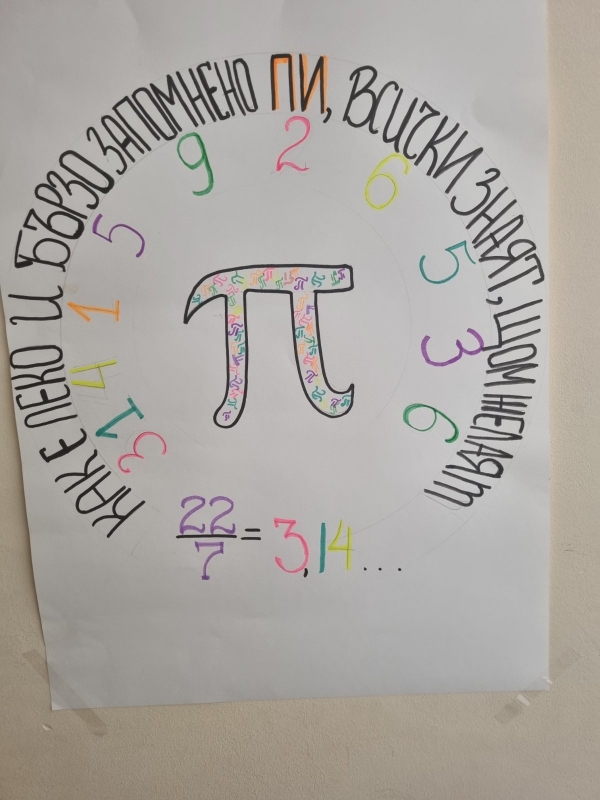 КАК Е ЛЕКО И БЪРЗО ЗАПОМНЕНО ПИ, ВСИЧКИ ЗНАЯТ, ЩОМ ЖЕЛАЯТ
3 1 4 1 5 9 2 6 5 3 6
π
22/7 = 3,14...